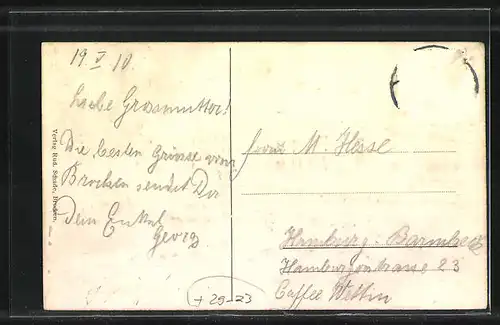 19 V 10.
Liebe Grossmutter!
Die besten Grüsse vom
Brocken sendet Dir
Dein Enkel
Georg
Frau M. Hesse
Hamburg-Barmbeck
Hamburgerstrasse 23
Caffee Wettin
+ 29-23
Verlag Rud. Schade, Brocken.